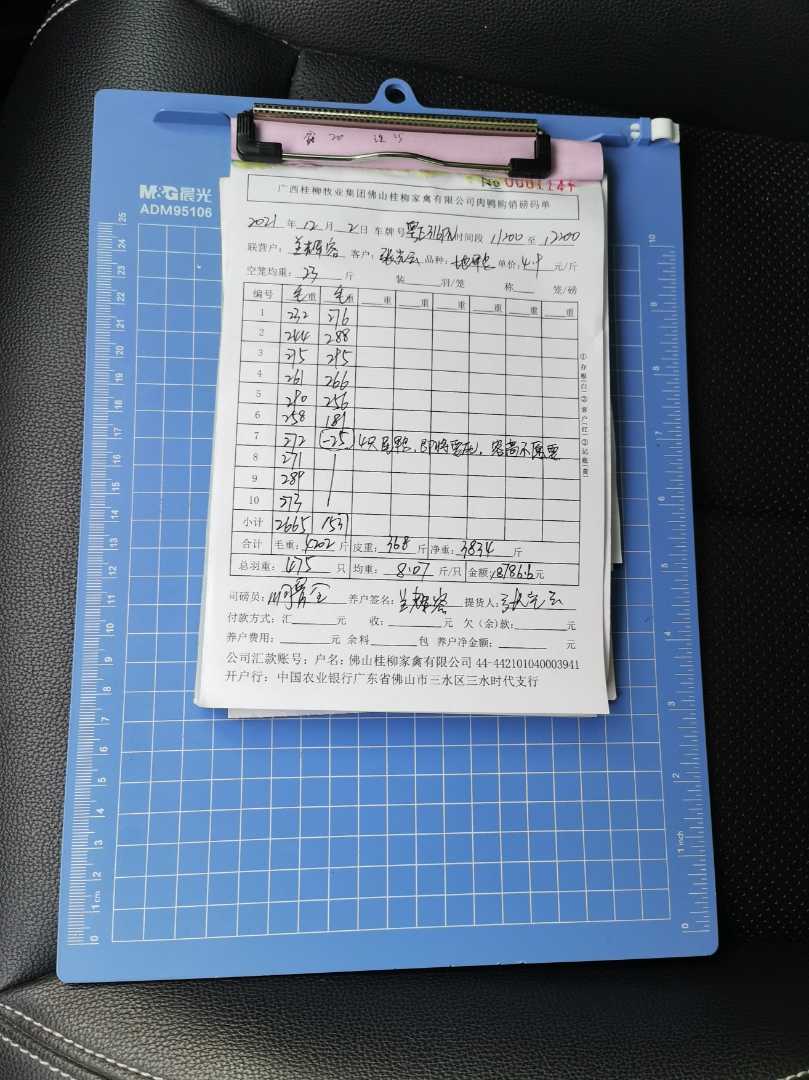 M&G晨光
ADM95106
No 0001144
广西桂柳牧业集团佛山桂柳家禽有限公司肉鸭购销磅码单
2021年12月2日 车牌号 时间段 11200 至 12200
联营户: 客户: 品种: 单价:4.9元/斤
空笼均重:23斤 装 羽/笼 称 笼/磅
编号 毛重 毛重 重 重 重 重 重 重
1 232 276
2 244 288
3 275 295
4 261 266
5 290 256
6 258 181
7 272 (-25)
8 271
9 289
10 273
小计 2665 1537
合计 毛重:4202斤 皮重:368斤 净重:3834斤
总羽重:475只 均重:8.07斤/只 金额:18786.6元
司磅员: 养户签名: 提货人:
付款方式:汇 元 收: 元 欠(余)款: 元
养户费用: 元 余料 包 养户净金额: 元
公司汇款账号:户名:佛山桂柳家禽有限公司 44-442101040003941
开户行:中国农业银行广东省佛山市三水区三水时代支行
①存根(白)②客户(红)③记账(黄)